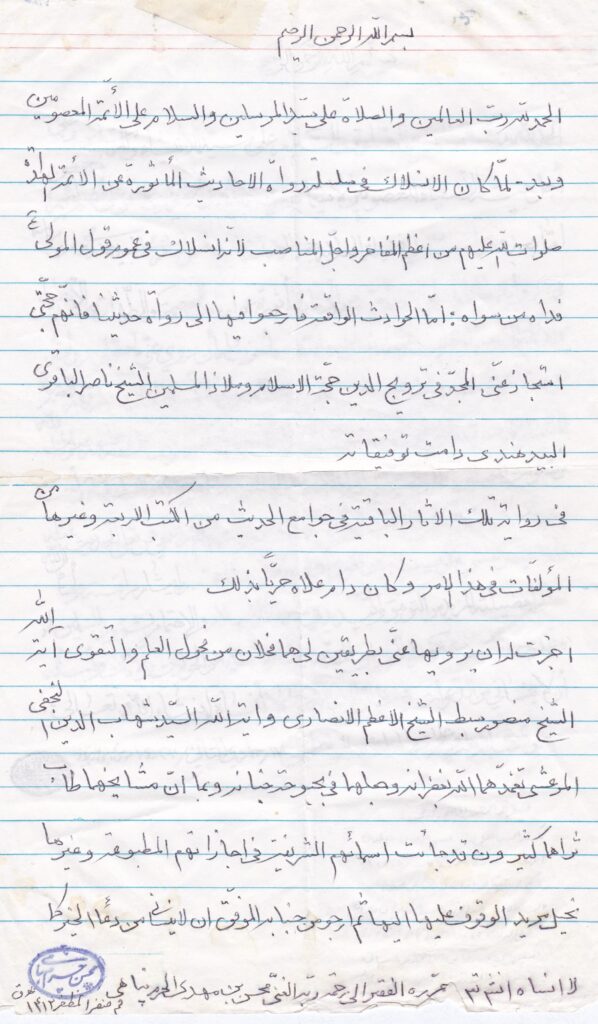 بسم الله الرحمن الرحیم
الحمد لله رب العالمین والصلاة علی سید المرسلین والسلام علی الأئمة المعصومین
وبعد - لمّا کان الانسلاك فی سلسلة رواة الاحادیث المأثورة عن الأئمة الهداة
صلوات الله علیهم من اعظم المفاخر واجلّ المناصب لانّه انسلاك فی عموم قول المولی ع
فداه من سواه : امّا الحوادث الواقعة فارجعوا فیها الی رواة حدیثنا فانّهم حجّتی
استجاز عنّی المجدّ فی ترویج الدین حجّة الاسلام وملاذ المسلمین الشیخ ناصر الباقری
البیدهندی دامت توفیقاته
فی روایة تلك الاثار الباقیة فی جوامع الحدیث من الکتب الاربعة وغیرها من
المؤلفات فی هذا الامر وکان دام علاه حریّاً بذلك
اجزت له ان یرویها عنّی بطریقین لی هما فحلان من فحول العلم والتّقوی آیة الله
الشیخ منصور سبط الشیخ الاعظم الانصاری وایة الله السیّد شهاب الدین النجفی
المرعشی تغمّدهما الله بغفرانه وجعلهما فی بحبوحة جنانه وبما انّ مشایخهما طاب
ثراهما کثیرون قد جائت اسمائهم الشریفة فی اجازاتهم المطبوعة وغیرها
نحیل مرید الوقوف علیها الیها ثم ارجو من جنابه الموفّق ان لاینسانی من دعاء الخیر کما
لا انساه انشاءالله حرّره الفقیر الی رحمة ربه الغنیّ محسن بن مهدی الحرم پناهی
قم صفر المظفر ۱۴۱۳ هـ ق